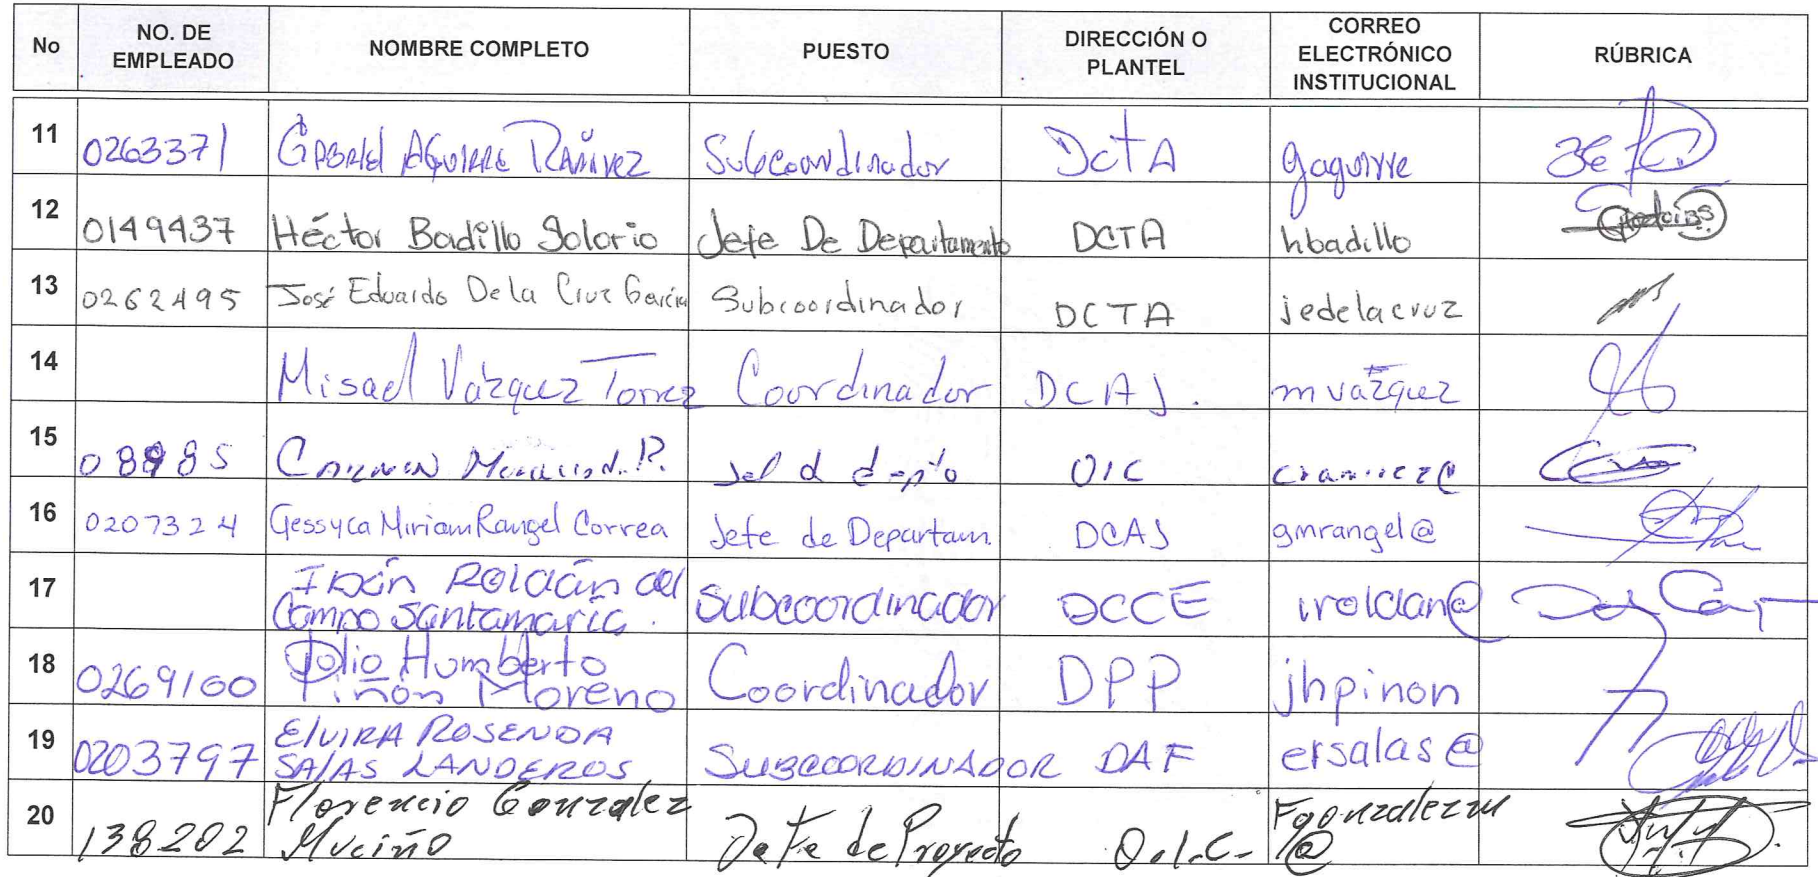 No NO. DE EMPLEADO NOMBRE COMPLETO PUESTO DIRECCIÓN O PLANTEL CORREO ELECTRÓNICO INSTITUCIONAL RÚBRICA
11 0263371 Gabriel Aguirre Ramírez Subcoordinador DCTA gaguirre
12 0149437 Héctor Badillo Solorio Jefe De Departamento DCTA hbadillo
13 0262495 José Eduardo De la Cruz García Subcoordinador DCTA jedelacruz
14 Misael Vázquez Torrez Coordinador DCAJ. mvázquez
15 Carmen R. Jef d depto OIC cramirez@
16 0207324 Gessyca Miriam Rangel Correa Jefe de Departam. DCAJ gmrangel@
17 Ibán Roldán del Campo Santamaría. Subcoordinador DCCE iroldan@
18 0269100 Julio Humberto Piñón Moreno Coordinador DPP jhpinon
19 0203797 ELVIRA ROSENDA SALAS LANDEROS SUBCOORDINADOR DAF ersalas@
20 138202 Florencio Gonzalez Muciño Jefe de Proyecto O.I.C. Fgonzalezm@